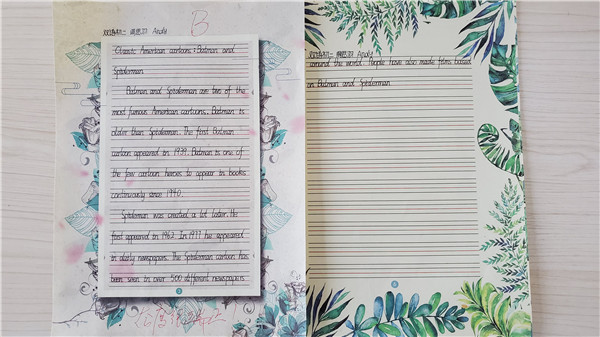 B
Andy
Classic American cartoons: Batman and
Spiderman
Batman and Spiderman are two of the
most famous American cartoons. Batman is
older than Spiderman. The first Batman
cartoon appeared in 1939. Batman is one of
the few cartoon heroes to appear in books
continuously since 1940.
Spiderman was created a lot later. He
first appeared in 1962. In 1977 he appeared
in daily newspapers. The Spiderman cartoon has
been seen in over 500 different newspapers
Andy
around the world. People have also made films based
on Batman and Spiderman